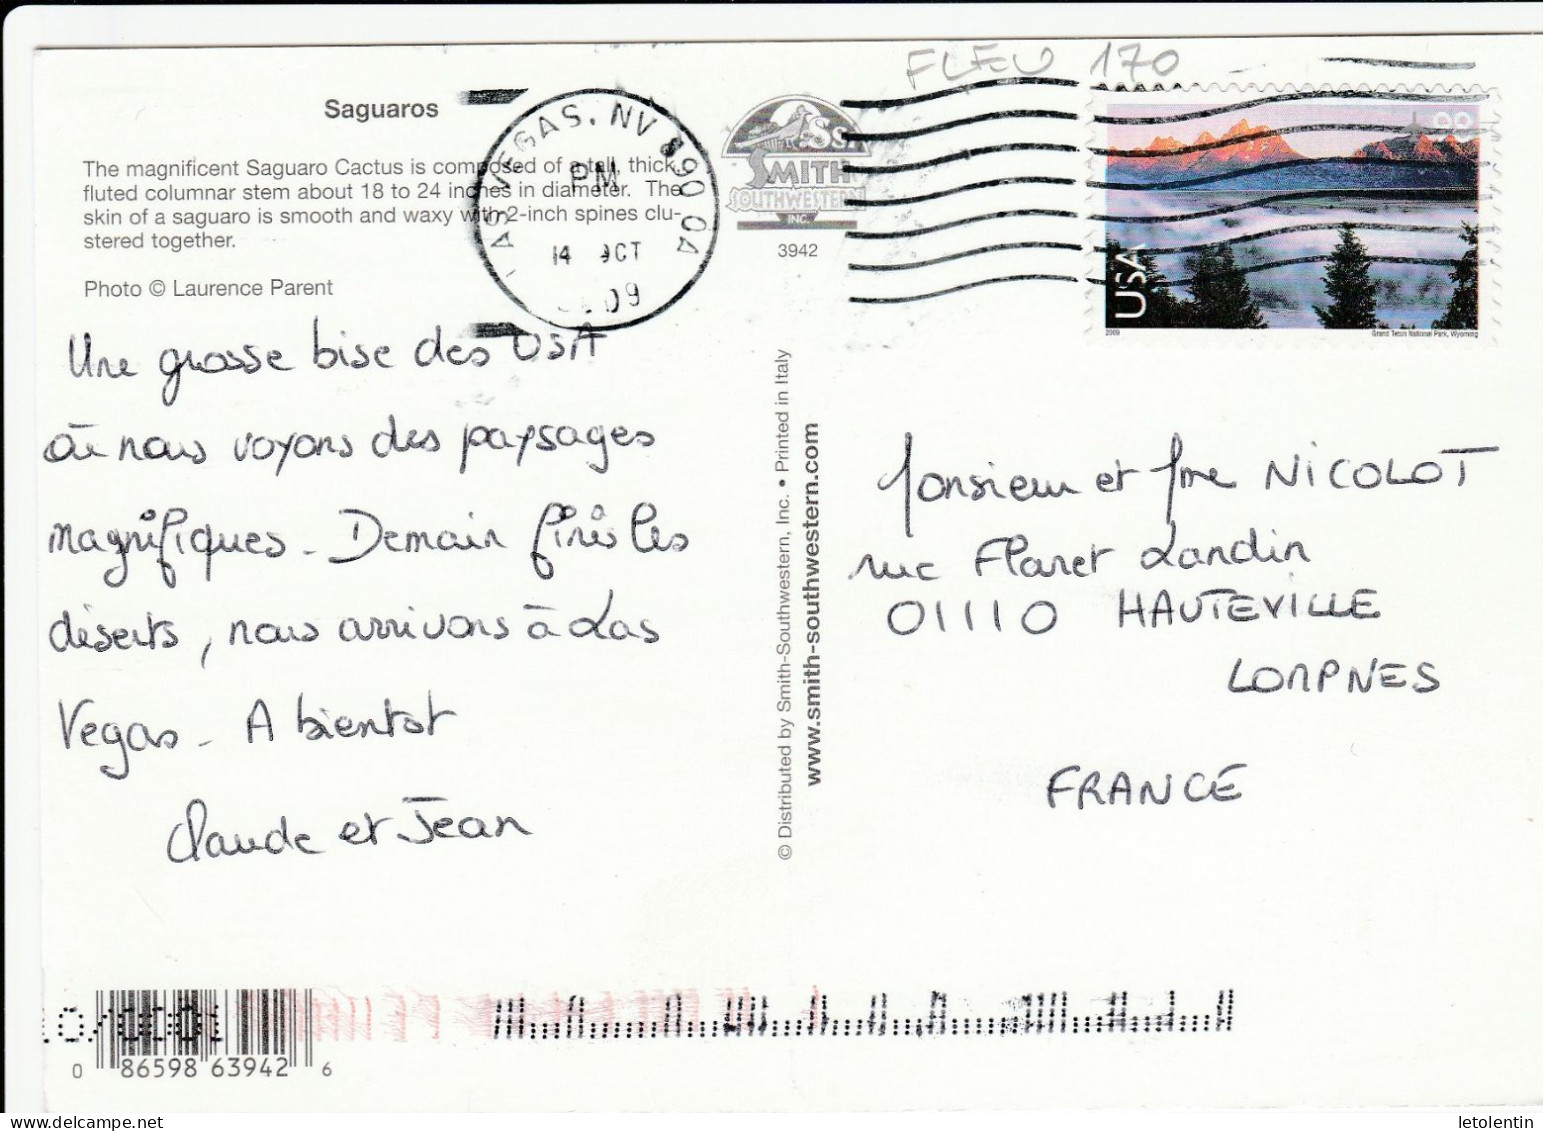 FLEU 170
Saguaros
The magnificent Saguaro Cactus is composed of a tall, thick,
fluted columnar stem about 18 to 24 inches in diameter. The
skin of a saguaro is smooth and waxy with 2-inch spines clu-
stered together.
Photo © Laurence Parent
LAS VEGAS, NV 890 04
PM
14 OCT
2009
SMITH
SOUTHWESTERN
INC.
3942
USA
98
2009
Grand Teton National Park, Wyoming
Une grosse bise des USA
où nous voyons des paysages
magnifiques - Demain finis les
déserts, nous arrivons à Las
Vegas - A bientôt
Claude et Jean
© Distributed by Smith-Southwestern, Inc. • Printed in Italy
www.smith-southwestern.com
Monsieur et Mme NICOLOT
rue Planet Landin
01110 HAUTEVILLE
LOMPNES
FRANCE
0 86598 63942 6
letolentin